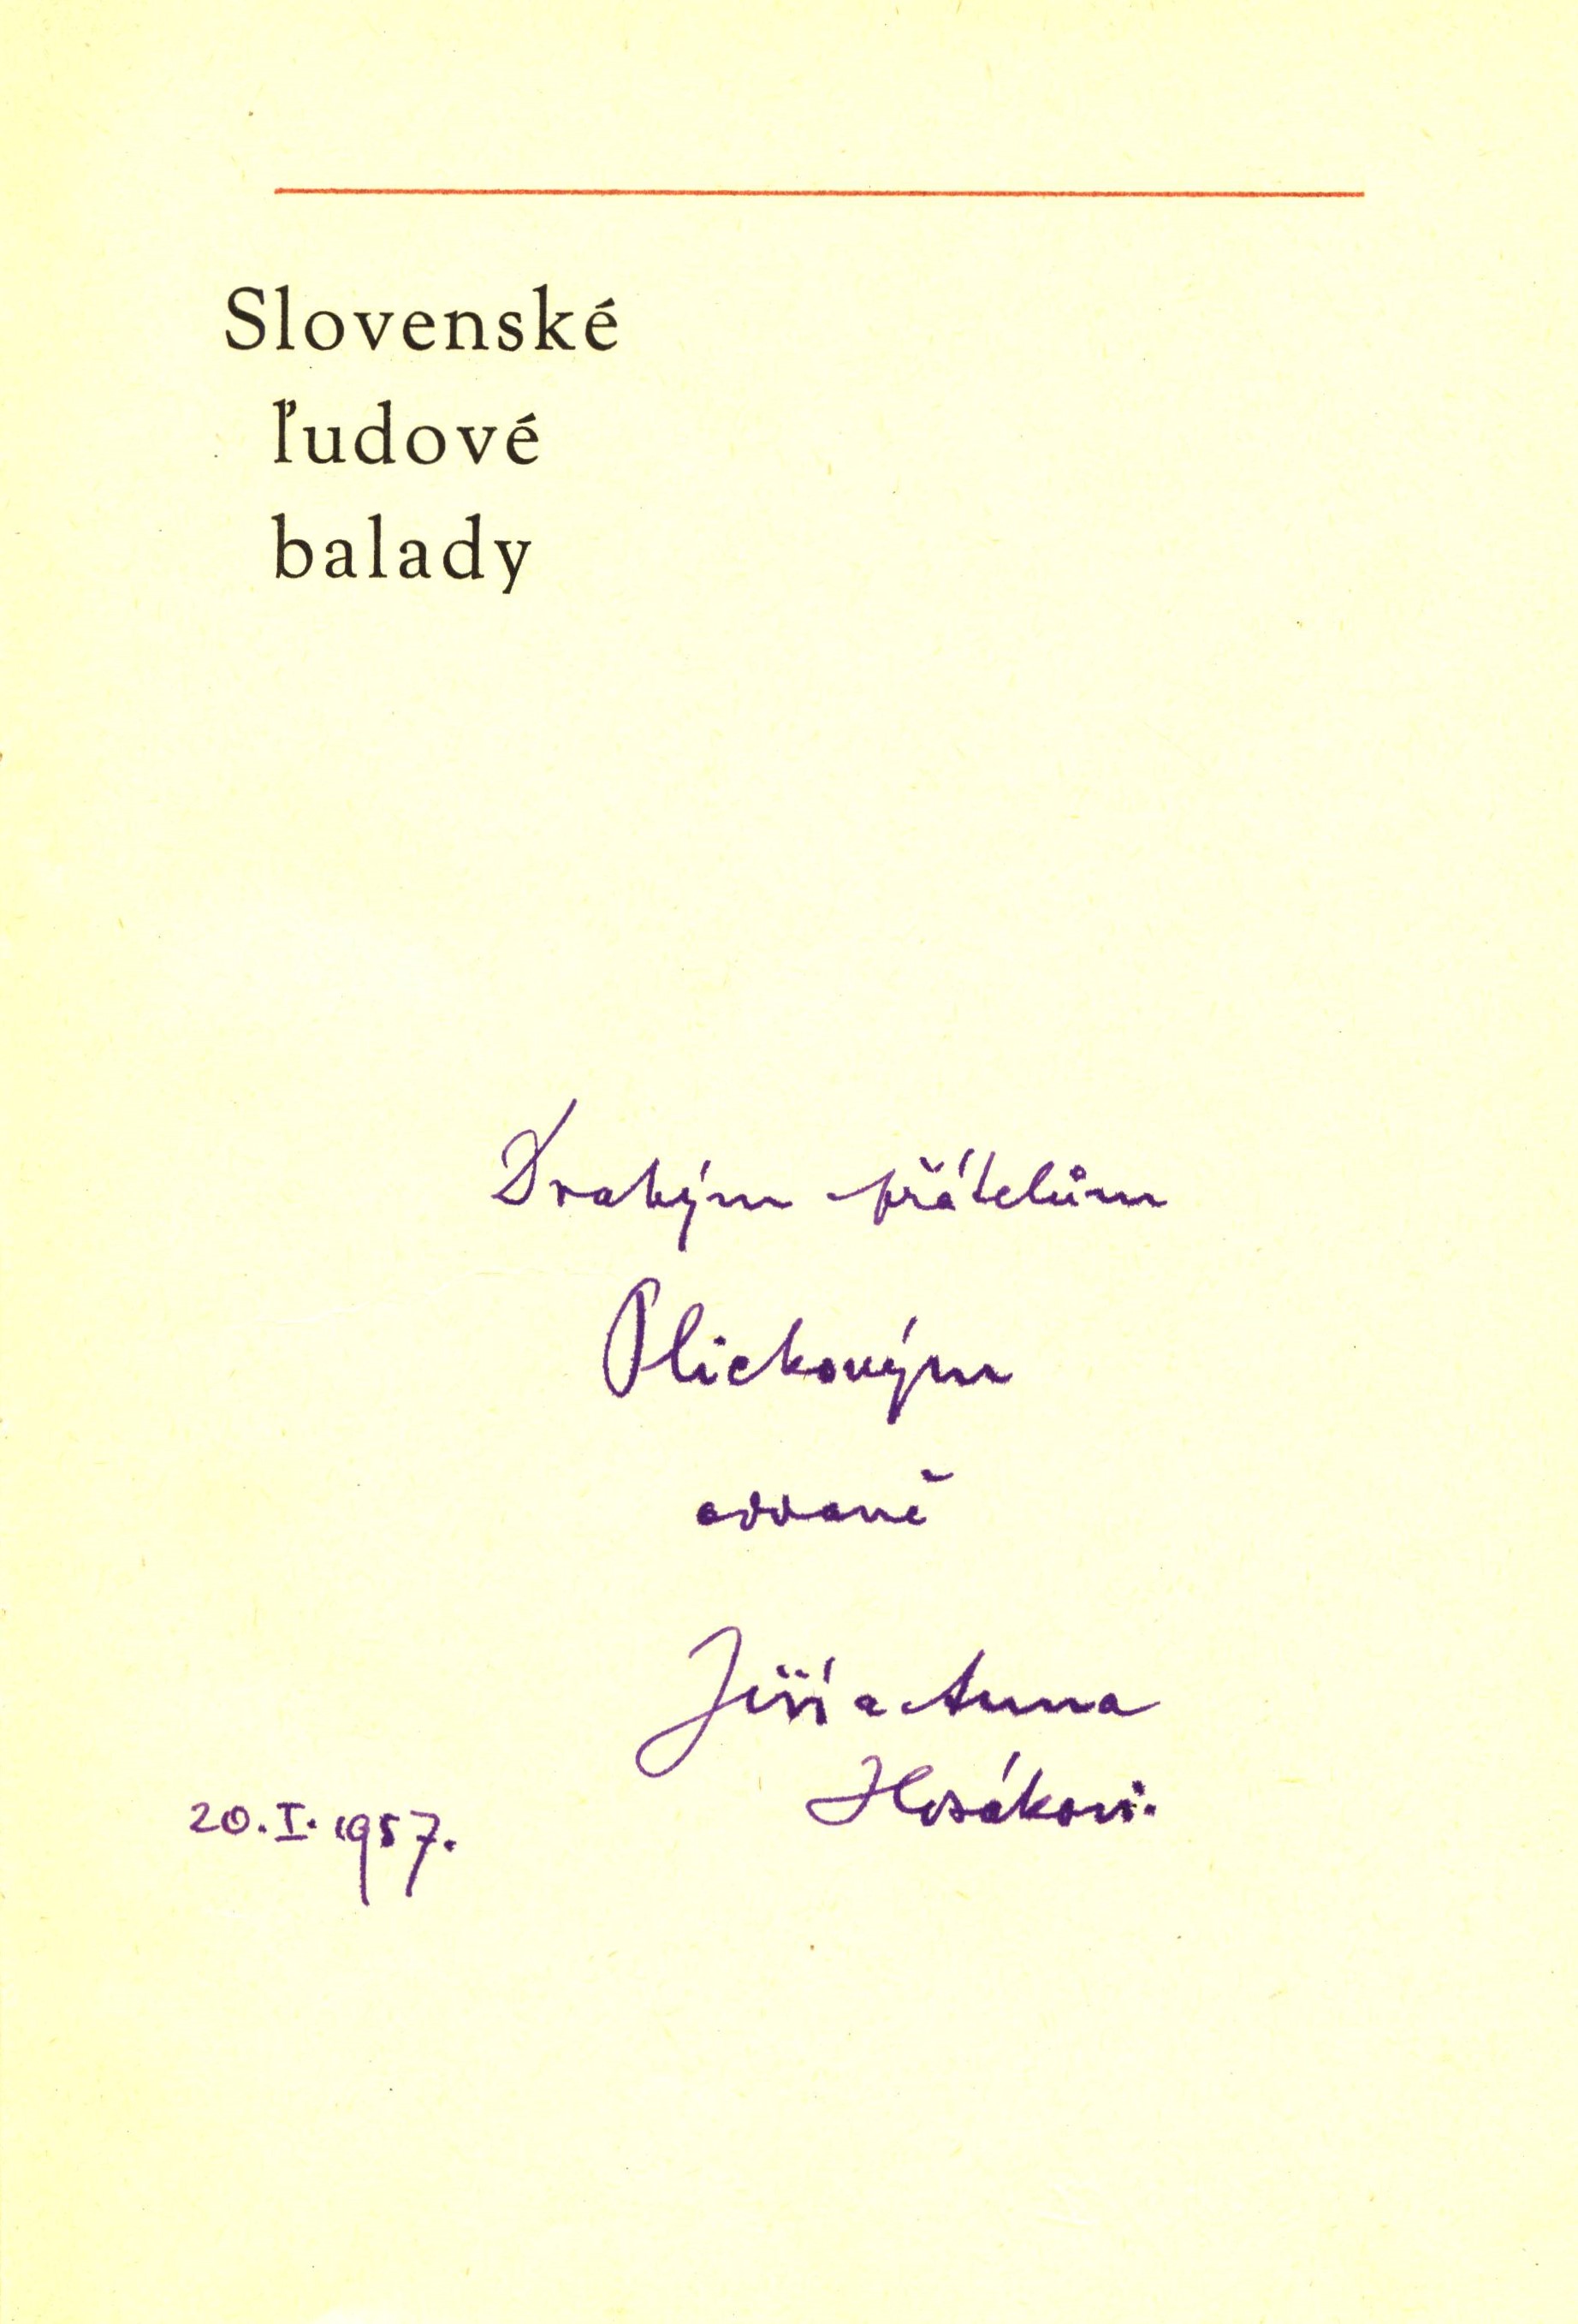 Slovenské
ľudové
balady
Drahým přátelům
Plickovým
oddaně
Jiří a Anna
Horákovi.
20. I. 1957.